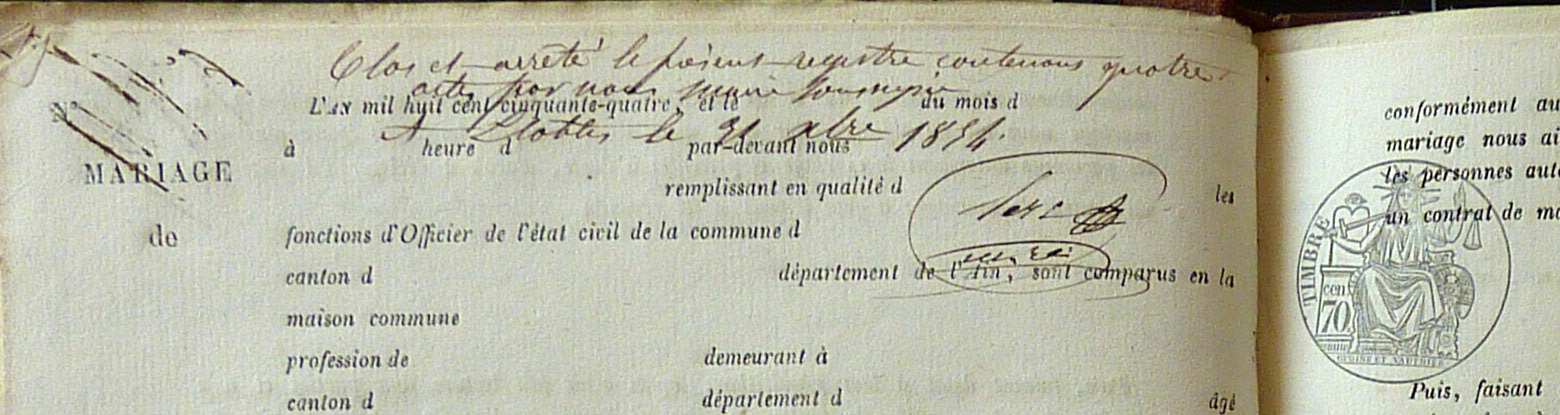 Clos et arrêté le présent registre contenant quatre
actes par nous maire soussigné
L'AN mil huit cent cinquante-quatre, et le du mois d
A le 31 xbre 1854.
à heure d par-devant nous
MARIAGE
remplissant en qualité d les
de
fonctions d'Officier de l'état civil de la commune d
canton d département de l'Ain, sont comparus en la
maison commune
profession de demeurant à
canton d département d âgé
conformément au
mariage nous ai
les personnes auto
un contrat de ma
TIMBRE
cen
70
Puis, faisant